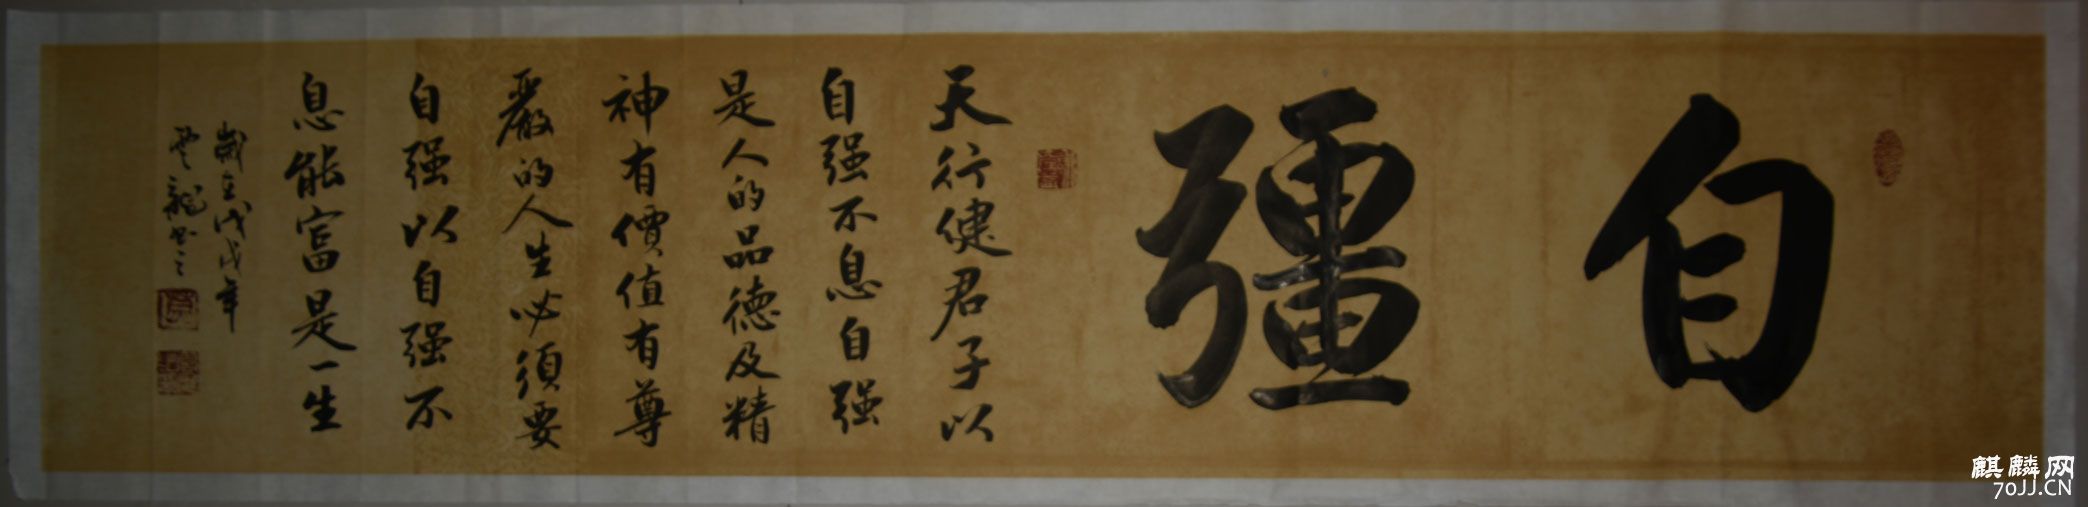 自彊
天行健君子以
自强不息自强
是人的品德及精
神有價值有尊
嚴的人生必須要
自强以自强不
息能富是一生
歲在戊戌年
雲龍書之
麒麟网
70JJ.CN